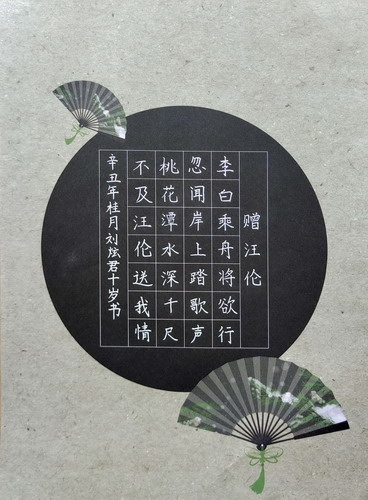 赠汪伦
李白乘舟将欲行
忽闻岸上踏歌声
桃花潭水深千尺
不及汪伦送我情
辛丑年桂月刘炫君十岁书